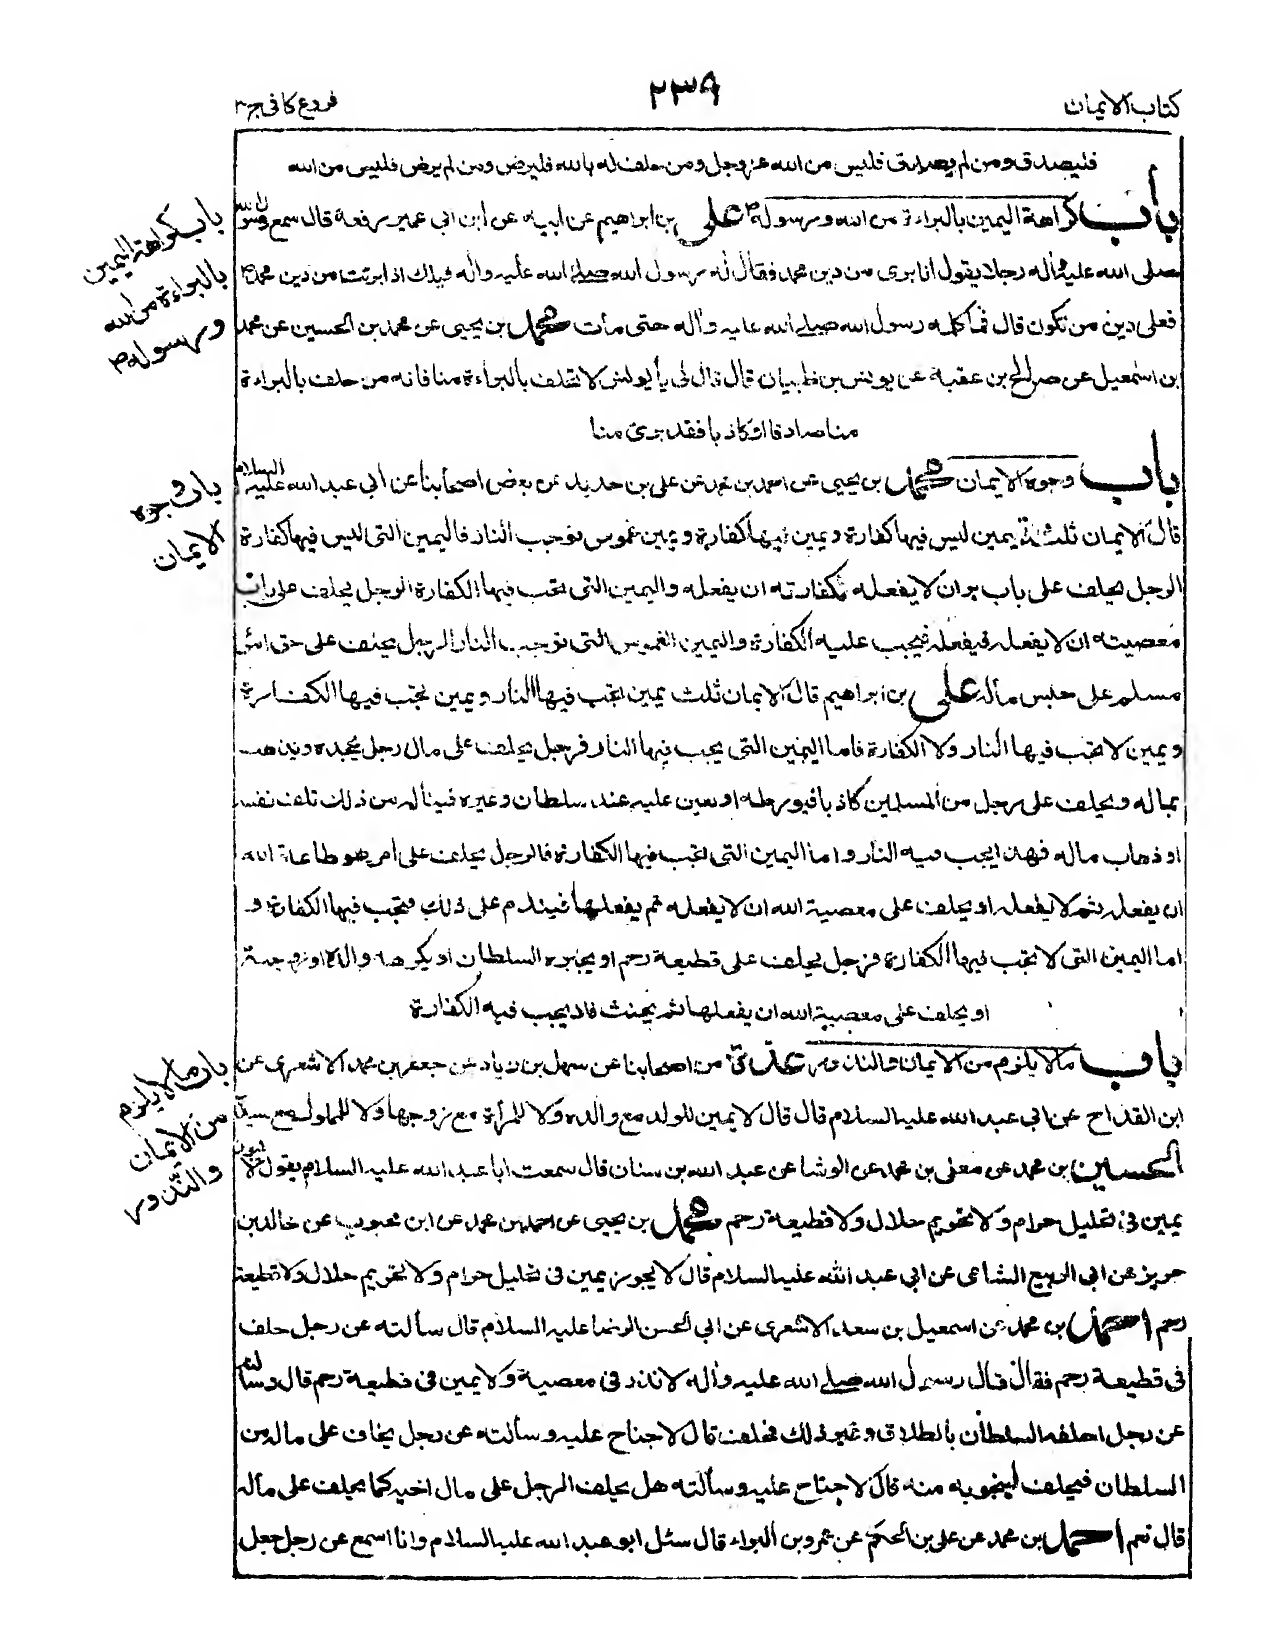 كتاب الايمان
٢٣٩
فروع كافى ج ٢
فليصدق ومن لم يصدق فليس من الله عز وجل ومن حلف له بالله فليرض ومن لم يرض فليس من الله
باب كراهة اليمين بالبراءة من الله ورسوله ص على بن ابراهيم عن ابيه عن ابن ابى عمير رفعه قال سمع رسول الله
صلى الله عليه واله رجلا يقول انا برى من دين محمد فقال له رسول الله صلى الله عليه واله ويلك اذا برئت من دين محمد
فعلى دين من تكون قال فما كلمه رسول الله صلى الله عليه واله حتى مات محمد بن يحيى عن محمد بن الحسين عن محمد
بن اسمعيل عن صالح بن عقبة عن يونس بن ظبيان قال قال لى يا يونس لا تحلف بالبراءة منا فانه من حلف بالبراءة
منا صادقا او كاذبا فقد برئ منا
باب وجوه الايمان محمد بن يحيى عن احمد بن محمد عن على بن حديد عن بعض اصحابنا عن ابى عبد الله عليه السلام
قال الايمان ثلثة يمين ليس فيها كفارة ويمين فيها كفارة ويمين غموس توجب النار فاليمين التى ليس فيها كفارة
الرجل يحلف على باب بر ان لا يفعله فكفارته ان يفعله واليمين التى تجب فيها الكفارة الرجل يحلف على باب
معصية ان لا يفعله فيفعله فيجب عليه الكفارة واليمين الغموس التى توجب النار الرجل يحلف على حق امرئ
مسلم على حبس ماله على بن ابراهيم قال الايمان ثلث يمين تجب فيها النار ويمين تجب فيها الكفارة
ويمين لا تجب فيها النار ولا الكفارة فاما اليمين التى يجب فيها النار فرجل يحلف على مال رجل يجحده ويذهب
بماله ويحلف على رجل من المسلمين كاذبا فيورطه او يعين عليه عند سلطان وغيره فيناله من ذلك تلف نفسه
او ذهاب ماله فهذا يجب فيه النار واما اليمين التى تجب فيها الكفارة فالرجل يحلف على امر هو طاعة الله
ان يفعله ثم لا يفعله او يحلف على معصية الله ان لا يفعله ثم يفعلها فيندم على ذلك فتجب فيها الكفارة و
اما اليمين التى لا تجب فيها الكفارة فرجل يحلف على قطيعة رحم او يجبره السلطان او يكرهه والده او زوجته
او يحلف على معصية الله ان يفعلها ثم يحنث فلا يجب فيه الكفارة
باب ما لا يلزم من الايمان والنذور عدة من اصحابنا عن سهل بن زياد عن جعفر بن محمد الاشعرى عن
ابن القداح عن ابى عبد الله عليه السلام قال قال لا يمين للولد مع والده ولا للمرأة مع زوجها ولا للمملوك مع سيده
الحسين بن محمد عن معلى بن محمد عن الوشا عن عبد الله بن سنان قال سمعت ابا عبد الله عليه السلام يقول لا يجوز
يمين فى تحليل حرام ولا تحريم حلال ولا قطيعة رحم محمد بن يحيى عن احمد بن محمد عن ابن محبوب عن خالد بن
جرير عن ابى الربيع الشامى عن ابى عبد الله عليه السلام قال لا يجوز يمين فى تحليل حرام ولا تحريم حلال ولا قطيعة
رحم احمد بن محمد عن اسمعيل بن سعد الاشعرى عن ابى الحسن الرضا عليه السلام قال سألته عن رجل حلف
فى قطيعة رحم فقال قال رسول الله صلى الله عليه واله لا نذر فى معصية ولا يمين فى قطيعة رحم قال وسألته
عن رجل احلفه السلطان بالطلاق وغير ذلك فحلف قال لا جناح عليه وسألته عن رجل يخاف على ماله من
السلطان فيحلف لينجو به منه قال لا جناح عليه وسألته هل يحلف الرجل على مال اخيه كما يحلف على ماله
قال نعم احمد بن محمد عن على بن الحكم عن عمرو بن البراء قال سئل ابو عبد الله عليه السلام وانا اسمع عن رجل جعل
باب كراهة اليمين
بالبراءة من الله
ورسوله ص
باب وجوه
الايمان
باب ما لا يلزم
من الايمان
والنذور